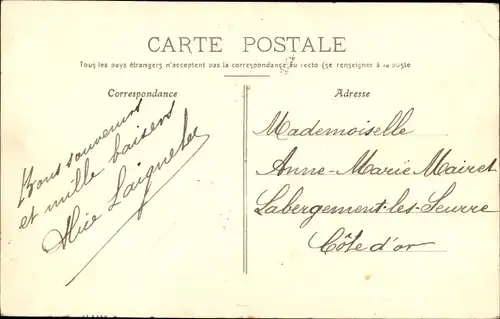 CARTE POSTALE
Tous les pays étrangers n'acceptent pas la correspondance au recto (Se renseigner à la poste
Correspondance
Bons souvenirs
et mille baisers
Alice Laignelet
Adresse
Mademoiselle
Anne-Marie Mairet
Labergement-les-Seurre
Côte d'or